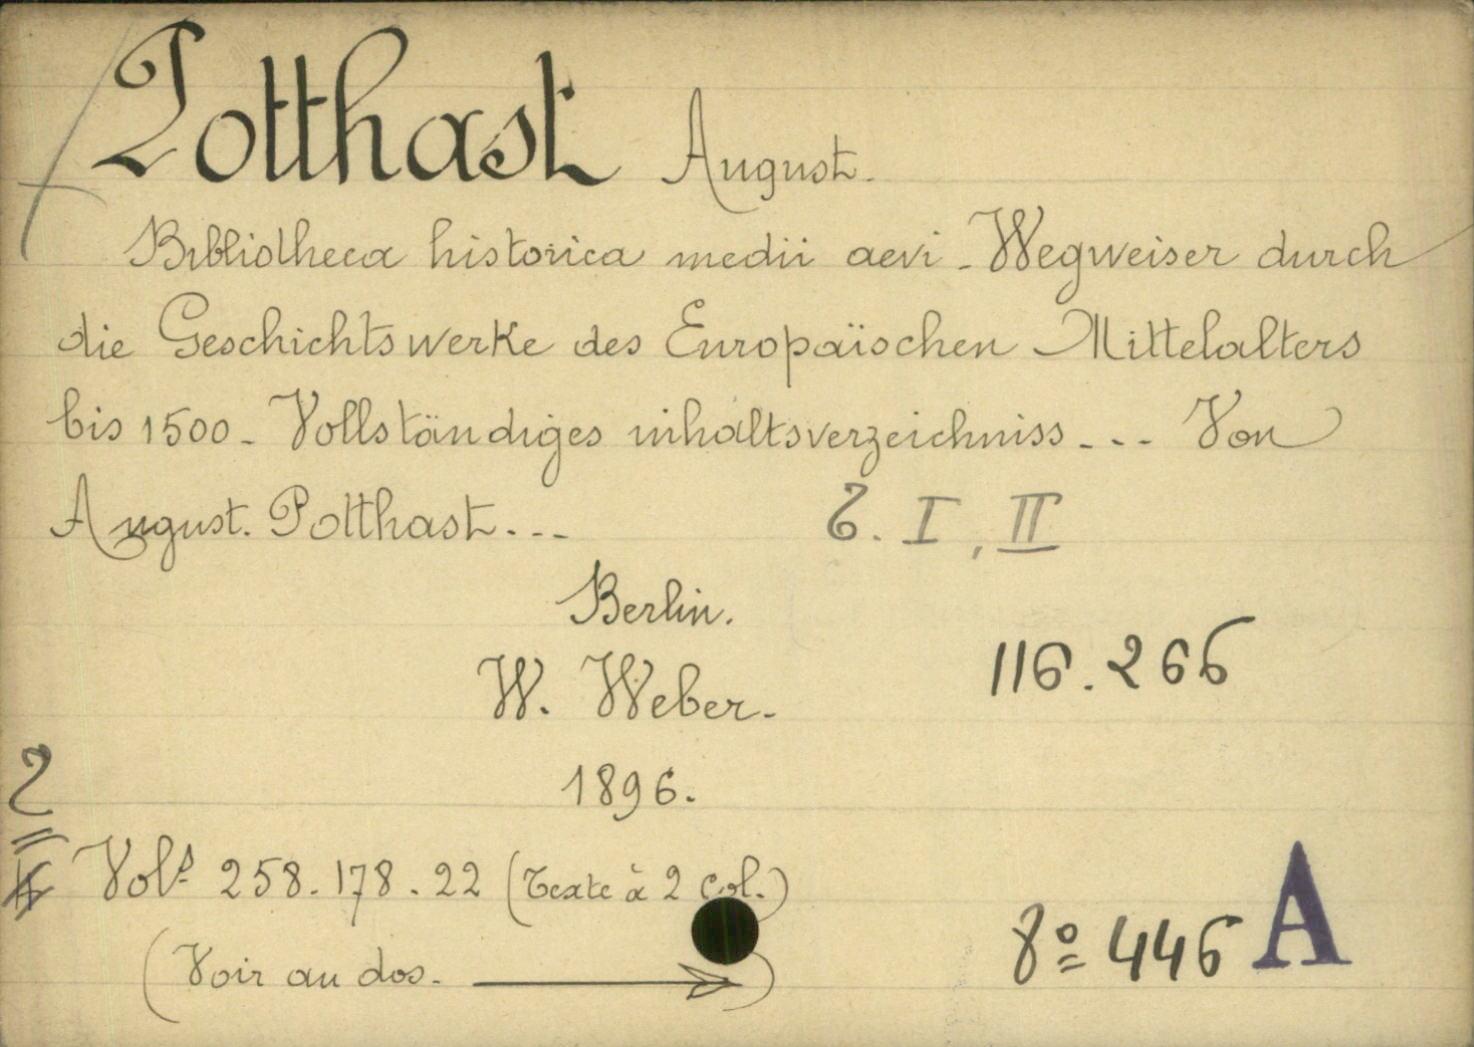 Potthast August.
Bibliotheca historica medii aevi - Wegweiser durch
die Geschichtswerke des Europäischen Mittelalters
bis 1500 - Vollständiges inhaltsverzeichniss - - - Von
August. Potthast. - -
T. I, II
Berlin.
W. Weber.
116.266
1896.
2
Vols 258.178.22 (Texte à 2 Col.)
(Voir au dos. →)
8º 446 A